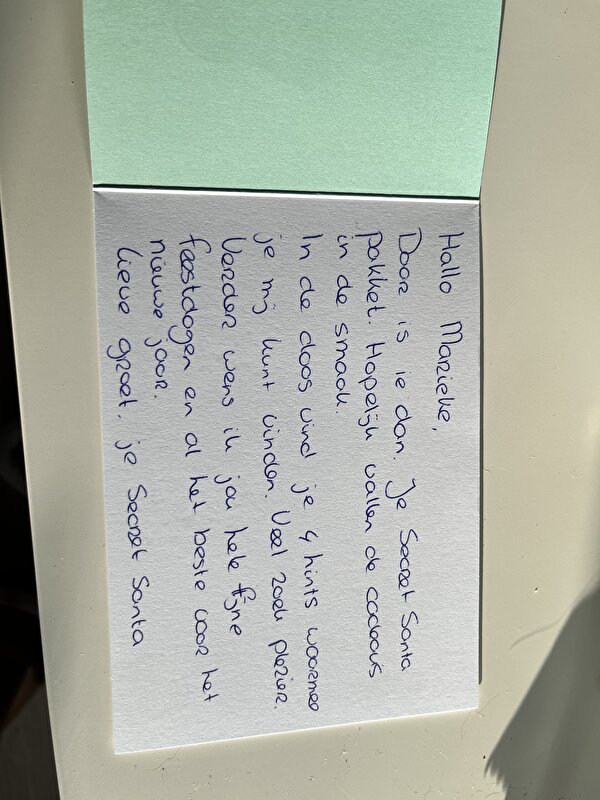 Hallo Marieke,
Daar is ie dan. Je Secret Santa
pakket. Hopelijk vallen de cadeaus
in de smaak.
In de doos vind je 4 hints waarmee
je mij kunt vinden. Veel zoek plezier.
Verder wens ik jou hele fijne
feestdagen en al het beste voor het
nieuwe jaar.
lieve groet, je Secret Santa